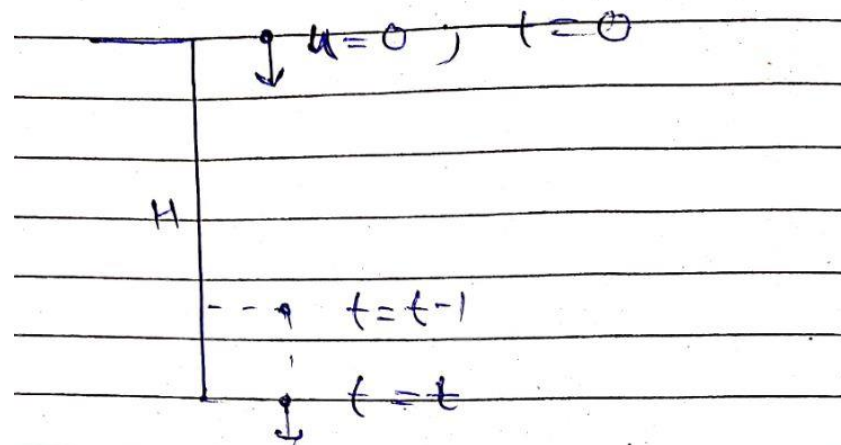 u = 0 ; t = 0
H
t = t - 1
t = t